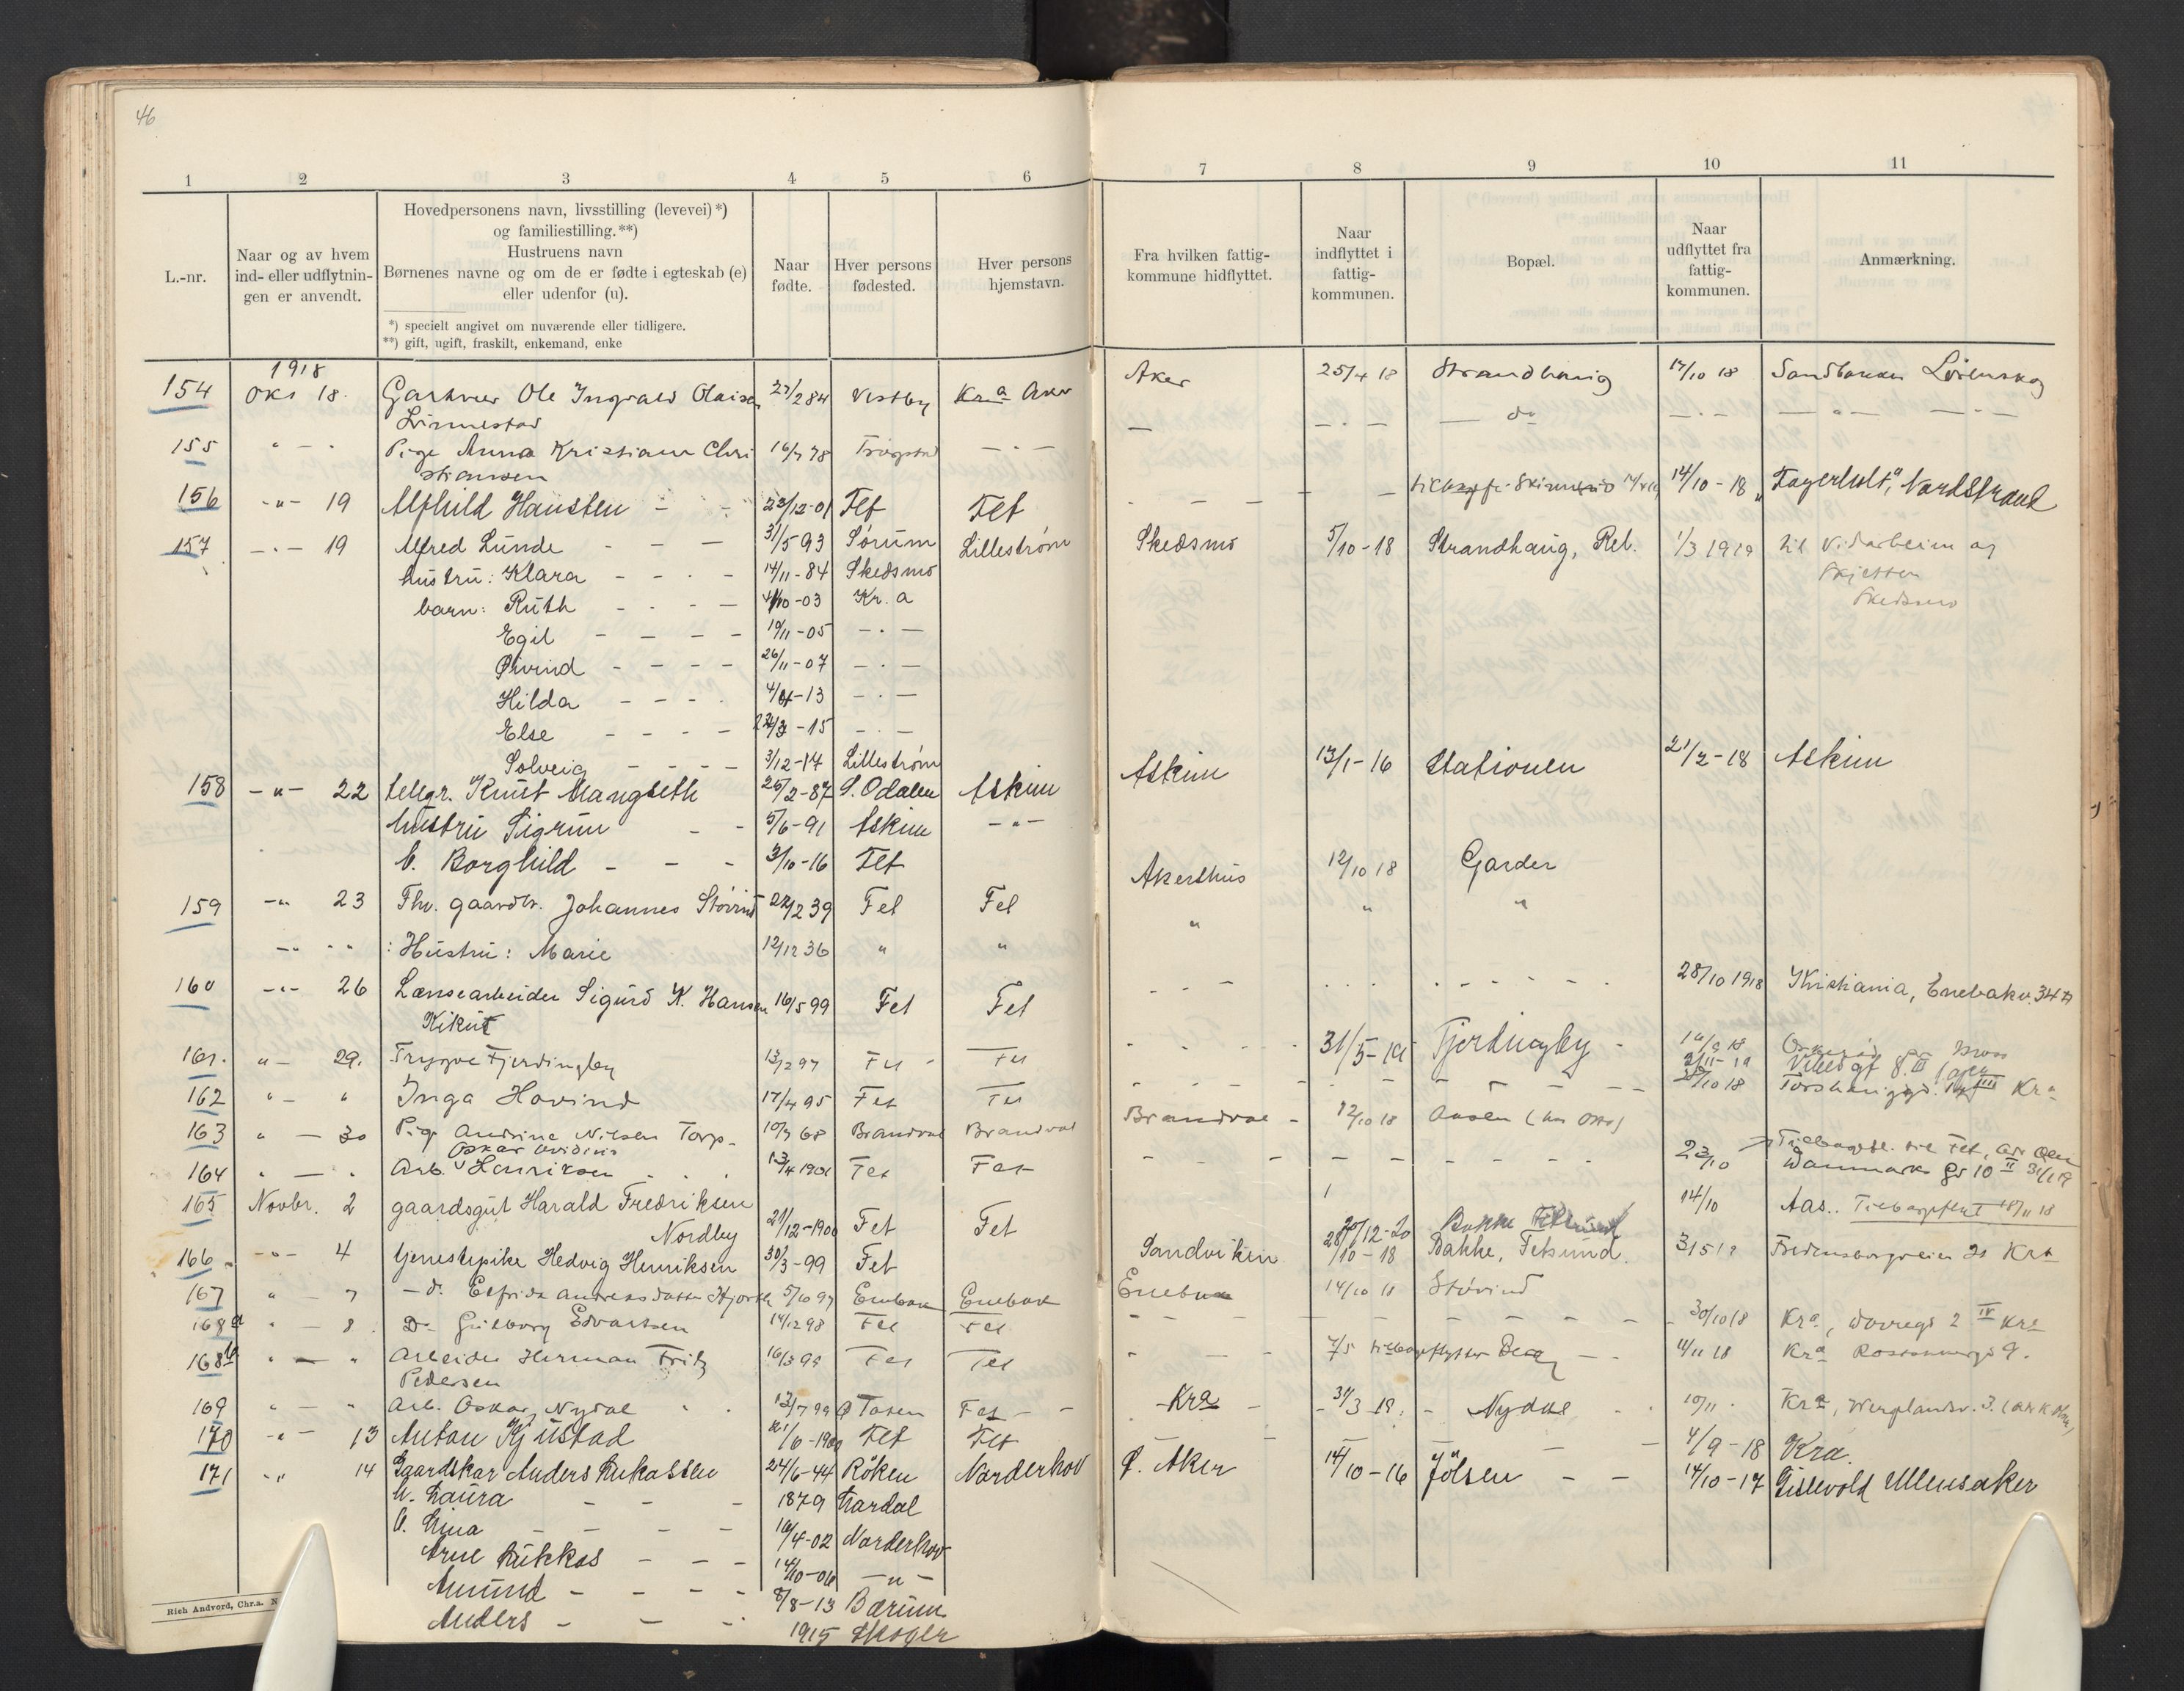 46
1 2 3 4 5 6 7 8 9 10 11
L.-nr.
Naar og av hvem ind- eller udflytnin-gen er anvendt.
Hovedpersonens navn, livsstilling (levevei)*)
og familiestilling.**)
Hustruens navn
Børnenes navne og om de er fødte i egteskab (e)
eller udenfor (u).
*) specielt angivet om nuværende eller tidligere.
**) gift, ugift, fraskilt, enkemand, enke
Naar fødte.
Hver persons fødested.
Hver persons hjemstavn.
Fra hvilken fattig-kommune hidflyttet.
Naar indflyttet i fattig-kommunen.
Bopæl.
Naar udflyttet fra fattig-kommunen.
Anmærkning.
1918
154 Okt 18. Gartner Ole Ingvald Olaisen Vestby Kr.a Aker Aker 25/4 18 Strandhaug 17/10 18 Sandbakken Lørenskog
Linnestad — do — - — — " — — - —
155 " - " Pige Anna Kristiane Chri 16/7 78 Trøgstad — - —
stiansen
156 -"- 19 Alfhild Hansten - - 23/12-01 Fet Fet 14/10-18 "Fagerholt", Nordstrand
157 -"- 19 Alfred Lunde - - - 31/5 93 Sørum Lillestrøm Skedsmo 5/10-18 Strandhaug, Rel. 1/3 1919 til Vidarheim ag
hustru: Klara - - - - 14/11-84 Skedsmo Skjetten
barn: Ruth - - - - 4/10-03 Kr.a Skedsmo
Egil - - - - 19/11-05 — - —
Øivind - - - - 26/11-07 — - —
Hilda - - - - 4/4-13 — - —
Else - - - - -15 — - —
Solveig - - - - 3/12-17 Lillestrøm
158 -"- 22 telegr. Knut Mangseth 26/2-87 S. Odalen Askim Askim 13/1-16 Stationen 21/2-18 Askim
hustru Sigrun - - 5/6-91 Askim -"-
b. Borghild - - - 3/10-16 Fet
159 -"- 23 Fhv. gaardbr. Johannes Støvind 39 Fet Fet Akershus 12/10 18 Garder
-"- " : Hustru: Marie 12/12 36 " " " " "
160 -"- 26 Lænsearbeider Sigurd K. Hansen 16/5 99 Fet Fet - - - - - - 28/10 1918 Kristiania, Enebakv. 34
Kikut
161. " - 29. Trygve Fjerdingby 13/2 97 Fet Fet 31/5-19 Fjerdingby -
162 " - " Inga Hovind 17/4 95 Fet Fet 28/10 18 Kr.a
163 " - 30 Pige Andrine Nilsen Torp- 10/7 68 Brandval Brandval Brandval - 12/10 18 Aasen
Oskar Ovidius
164 " - " Arb. Henriksen 13/4 1901 Fet Fet 23/10 Danmarks gt 10 II
165 Novbr. 2 gaardsgut Harald Fredriksen 14/10 Aas.
Nordby 21/12-1900 Fet Fet
166 -"- 4 tjenestepike Hedvig Henriksen 30/3-99 Fet Sandviken 28/10-18 Bakke, Fetsund. 31 5 19 Fredensborgveien Kra
167 " - 7 - do. Elfrida Andreasdatter Hjorth 5/10 97 Enebak Enebak Enebak 14/10 18 Støvind
168a " - 8. Do Gudborg Edvartsen 14/12 98 Fet Fet 30/10 18 Kra, 2 IV Kra
168b " - " Arbeider Herman Fritz 16/3 99 Fet Fet 7/5 Berg 11/11 18 Kra 9.
Pedersen
169 " - " Arb. Oskar Nydal 13/7 99 Fet Kra 31/3 18 Nydal 10/11 Kra,
170 -"- 13 Anton Kjustad /6-1900 Fet Fet 4/9-18 Kra.
171 -"- 14 Gaardskar Anders Lukassen 24/6-44 Røken Norderhov Ø. Aker 14/10-16 Jølsen - - 14/10-17 Gislevold Ullensaker
h. Laura - - - 1879 Lardal
b. Lina - - - - 16/4-02 Norderhov
Arne Lukkas - - - 14/10-06 -"-
Amund - - - - 8/8-13 Bærum
Anders - - - 1915 Skoger
Rich Andvord, Chr.a. N